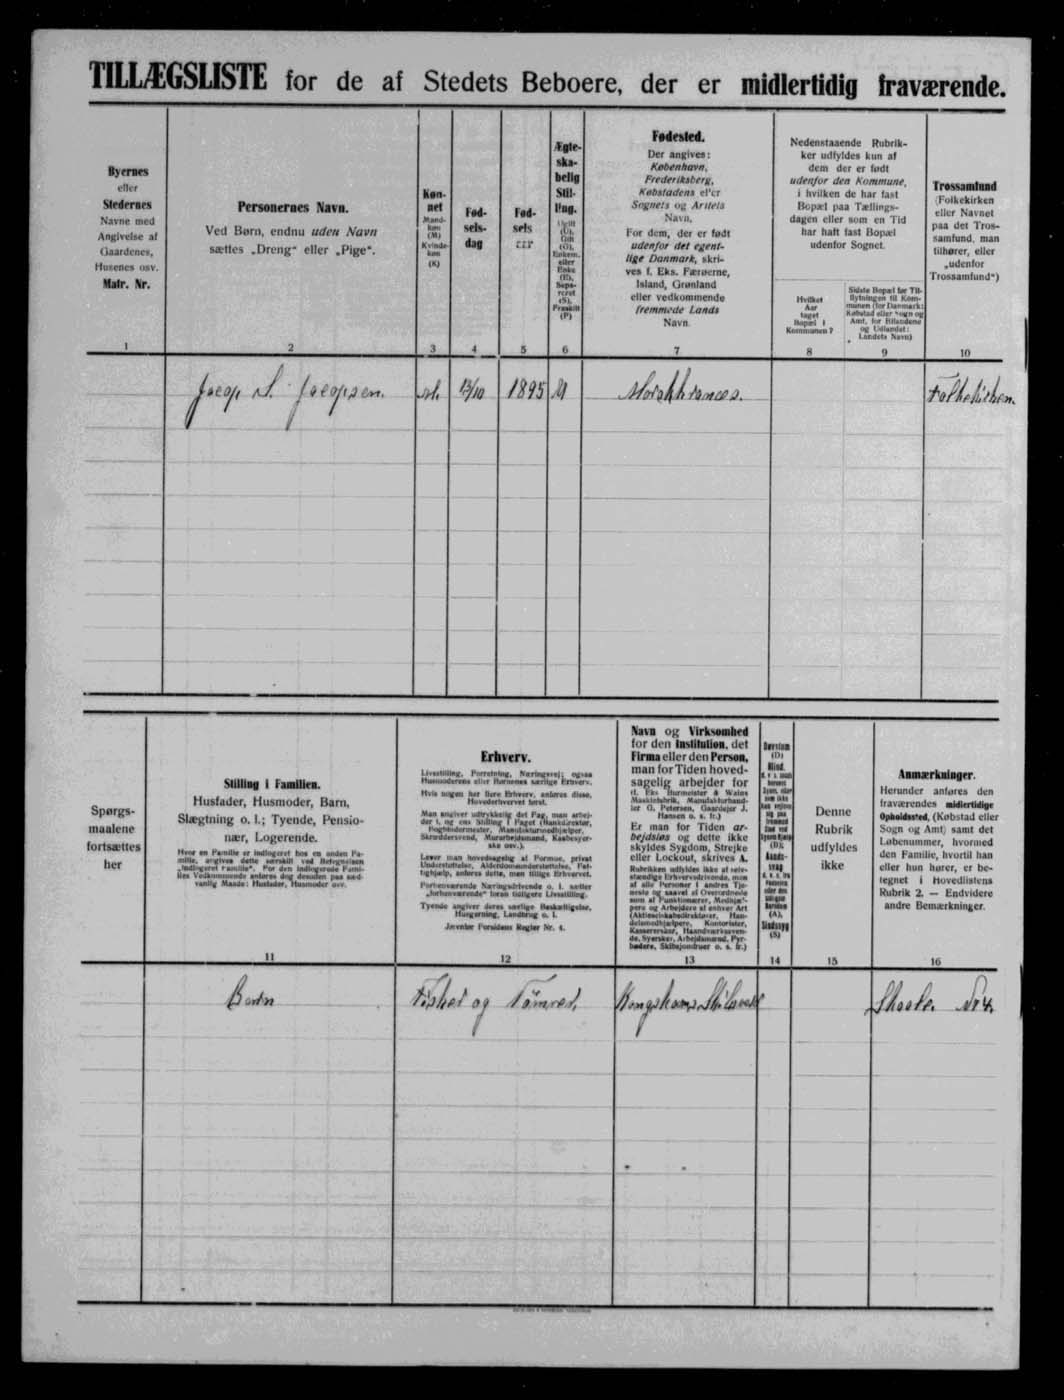 TILLÆGSLISTE for de af Stedets Beboere, der er midlertidig fraværende.
Byernes
eller
Stedernes
Navne med
Angivelse af
Gaardenes,
Husenes osv.
Matr. Nr.
1
Personernes Navn.
Ved Børn, endnu uden Navn
sættes „Dreng“ eller „Pige“.
2
Køn-
net
Mand-
køn
(M)
Kvinde-
køn
(K)
3
Fød-
sels-
dag
4
Fød-
sels
5
Ægte-
ska-
belig
Stil-
ling.
Ugift
(U),
Gift
(G),
Enkem.
eller
Enke
(E),
Sepa-
reret
(S),
Fraskilt
(F)
6
Fødested.
Der angives:
København,
Frederiksberg,
Købstadens el'er
Sognets og Amtets
Navn.
For dem, der er født
udenfor det egent-
lige Danmark, skri-
ves f. Eks. Færøerne,
Island, Grønland
eller vedkommende
fremmede Lands
Navn.
7
Nedenstaaende Rubrik-
ker udfyldes kun af
dem der er født
udenfor den Kommune,
i hvilken de har fast
Bopæl paa Tællings-
dagen eller som en Tid
har haft fast Bopæl
udenfor Sognet.
Hvilket
Aar
taget
Bopæl i
Kommunen?
8
Sidste Bopæl før Til-
flytningen til Kom-
munen (for Danmark:
Købstad eller Sogn og
Amt, for Bilandene
og Udlandet:
Landets Navn)
9
Trossamfund
(Folkekirken
eller Navnet
paa det Tros-
samfund, man
tilhører, eller
„udenfor
Trossamfund“)
10
Jacop S. Jacopsen. M. 12/10 1895 U Morskhranes. Folkekirken.
Spørgs-
maalene
fortsættes
her
Stilling i Familien.
Husfader, Husmoder, Barn,
Slægtning o. l.; Tyende, Pensio-
nær, Logerende.
Hvor en Familie er indlogeret hos en anden Fa-
milie, angives dette særskilt ved Betegnelsen
„indlogeret Familie“. For den indlogerede Fami-
lies Vedkommende anføres dog desuden paa sæd-
vanlig Maade: Husfader, Husmoder osv.
11
Erhverv.
Livsstilling, Forretning, Næringsvej; ogsaa
Husmoderens eller Børnenes særlige Erhverv.
Hvis nogen har flere Erhverv, anføres disse,
Hovederhvervet først.
Man angiver udtrykkelig det Fag, man arbej-
der i, og ens Stilling i Faget (Bankdirektør,
Bogbindermester, Manufakturmedhjælper,
Skræddersvend, Murarbejdsmand, Kasbesyer-
ske osv.).
Lever man hovedsagelig af Formue, privat
Understøttelse, Alderdomsunderstøttelse, Fat-
tighjælp, anføres dette, men tillige Erhvervet.
Forhenværende Næringsdrivende o. l. sætter
„forhenværende“ foran tidligere Livsstilling.
Tyende angiver deres særlige Beskæftigelse,
Husgerning, Landbrug o. l.
Jævnfør Forsidens Regler Nr. 4.
12
Navn og Virksomhed
for den Institution, det
Firma eller den Person,
man for Tiden hoved-
sagelig arbejder for
(f. Eks Burmeister & Wains
Maskinfabrik, Manufakturhand-
ler G. Petersen, Gaardejer J.
Hansen o. s. fr.)
Er man for Tiden ar-
bejdsløs og dette ikke
skyldes Sygdom, Strejke
eller Lockout, skrives A.
Rubrikken udfyldes ikke af selv-
stændige Erhvervsdrivende, men
af alle Personer i andres Tje-
neste og saavel af Overordnede
som af Funktionærer, Medhjæl-
pere og Arbejdere af enhver Art
(Aktieselskabsdirektører, Han-
delsmedhjælpere, Kontorister,
Kassererskør, Haandværkssven-
de, Syersker, Arbejdsmænd, Fyr-
bødere, Skibsjomfruer o. s. fr.)
13
Døvstum
(D)
Blind.
(B);
Aands-
svag
(A),
Sindssyg
(S)
14
Denne
Rubrik
udfyldes
ikke
15
Anmærkninger.
Herunder anføres den
fraværendes midlertidige
Opholdssted, (Købstad eller
Sogn og Amt) samt det
Løbenummer, hvormed
den Familie, hvortil han
eller hun hører, er be-
tegnet i Hovedlistens
Rubrik 2. — Endvidere
andre Bemærkninger.
16
Barn Fisker og Tömrer. Skaale. Nr 4.